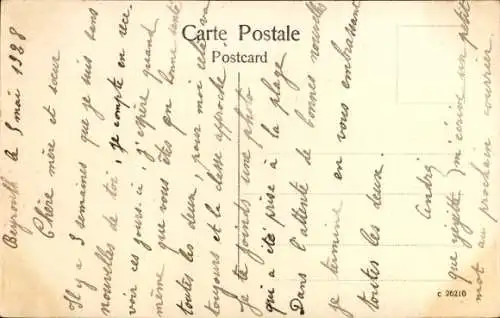 Carte Postale
Postcard
Beyrouth le 5 mai 1928
Chère mère et sœur
Il y a 3 semaines que je suis sans
nouvelles de toi, je compte en rece-
voir ces jours-ci, j'espère quand
même que vous êtes en bonne santé
toutes les deux, pour moi cela va
toujours et la classe approche
Je te joinds une photo
qui a été prise à la plage
Dans l'attente de bonnes nouvelles
je termine en vous embrassant
toutes les deux.
André
que gigitte m'écrive un petit
mot au prochain courrier
c 26210